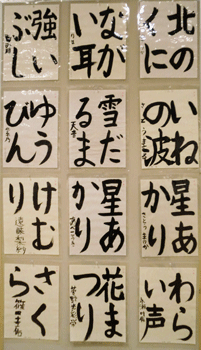 北の
くに
なが
い耳
強い
ぶし
いね
の波
雪だ
るま
ゆう
びん
星あ
かり
星あ
かり
けむ
り
わら
い声
花ま
つり
さく
ら